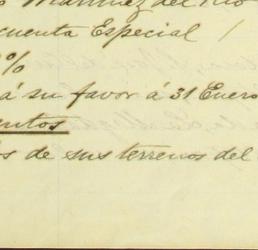 Martinez del Rio
cuenta Especial /
%
á su favor á 31 Enero
entos
s de sus terrenos del